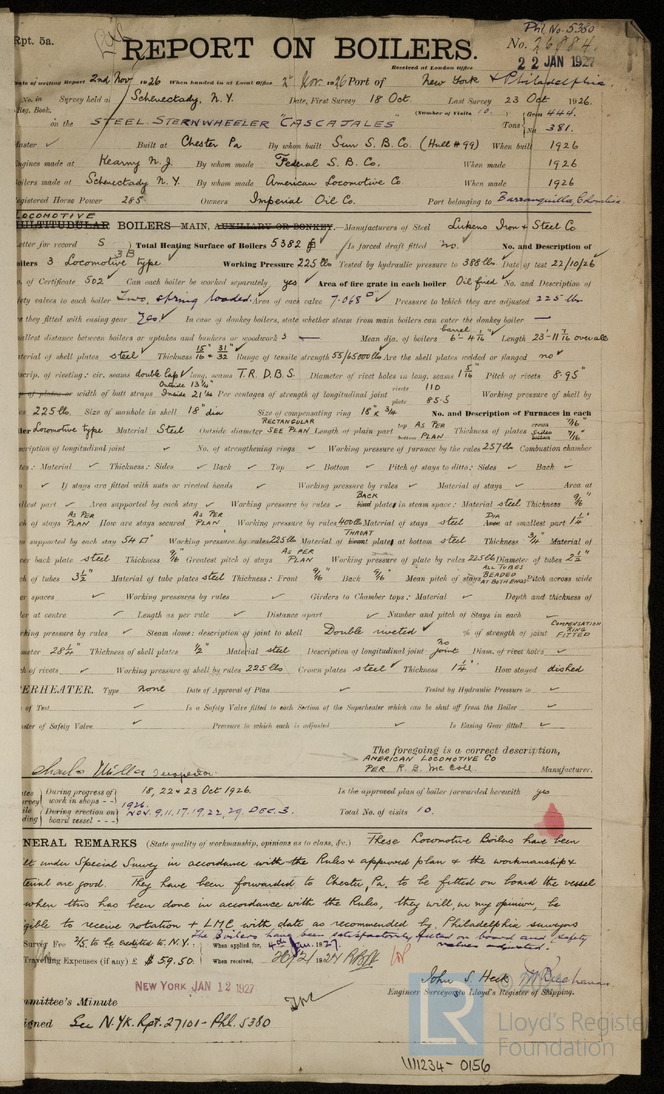 Phl. No. 5380
Rpt. 5a.
REPORT ON BOILERS.
No. 26884.
Received at London Office 22 JAN 1927
Date of writing Report 2nd Nov 1926 When handed in at Local Office 2 Nov. 1926 Port of New York & Philadelphia
No. in Survey held at Schenectady, N.Y. Date, First Survey 18 Oct. Last Survey 23 Oct 1926.
Reg. Book. (Number of Visits 10.)
on the STEEL STERNWHEELER "CASCAJALES" Tons Gross 444. Net 381.
Master ✓ Built at Chester Pa By whom built Sun S. B. Co. (Hull # 99) When built 1926
Engines made at Kearny N. J. By whom made Federal S. B. Co. When made 1926
Boilers made at Schenectady N.Y. By whom made American Locomotive Co. When made 1926
Registered Horse Power 285 Owners Imperial Oil Co. Port belonging to Barranquilla, Colombia
LOCOMOTIVE
MULTITUBULAR BOILERS—MAIN, AUXILIARY OR DONKEY.—Manufacturers of Steel Lukens Iron & Steel Co
Letter for record S Total Heating Surface of Boilers 5382 Is forced draft fitted no. No. and Description of
Boilers 3 Locomotive type Working Pressure 225 lbs Tested by hydraulic pressure to 388 lbs Date of test 22/10/26
No. of Certificate 502 Can each boiler be worked separately yes Area of fire grate in each boiler Oil fired No. and Description of
safety valves to each boiler Two, spring loaded. Area of each valve 7.068 □" Pressure to which they are adjusted 225 lbs.
Are they fitted with easing gear Yes. In case of donkey boilers, state whether steam from main boilers can enter the donkey boiler —
Smallest distance between boilers or uptakes and bunkers or woodwork — Mean dia. of boilers barrel 6'-4 7/16" Length 23'-11 7/16 overall
Material of shell plates steel Thickness 15/16" & 31/32" Range of tensile strength 55/65000 lbs Are the shell plates welded or flanged no
Descrip. of riveting: cir. seams double lap long. seams T.R.D.B.S. Diameter of rivet holes in long. seams 1 5/16" Pitch of rivets 8.95"
Lap of plates or width of butt straps Outside 13 1/4" Inside 21 1/4" Per centages of strength of longitudinal joint rivets 110 plate 85.5 Working pressure of shell by
rules 225 lbs. Size of manhole in shell 18" dia Size of compensating ring 18" x 3/4 No. and Description of Furnaces in each
boiler Locomotive type Material Steel Outside diameter RECTANGULAR SEE PLAN Length of plain part top AS PER bottom PLAN Thickness of plates crown 7/16" sides 7/16"
Description of longitudinal joint ✓ No. of strengthening rings ✓ Working pressure of furnace by the rules 257 lbs Combustion chamber
plates: Material ✓ Thickness: Sides ✓ Back ✓ Top ✓ Bottom ✓ Pitch of stays to ditto: Sides ✓ Back ✓
Top ✓ If stays are fitted with nuts or riveted heads ✓ Working pressure by rules ✓ Material of stays ✓ Area at
smallest part ✓ Area supported by each stay ✓ Working pressure by rules ✓ BACK End plates in steam space: Material steel Thickness 9/16"
Pitch of stays AS PER PLAN How are stays secured AS PER PLAN Working pressure by rules 400 lbs Material of stays steel DIA Area at smallest part 1 1/4"
Area supported by each stay 54 □" Working pressure by rules 225 lb Material of THROAT Front plates at bottom steel Thickness 3/4" Material of
Lower back plate steel Thickness 9/16" Greatest pitch of stays AS PER PLAN Working pressure of plate by rules 225 lb Diameter of tubes 2 1/2"
Pitch of tubes 3 1/2" Material of tube plates steel Thickness: Front 9/16" Back 9/16" Mean pitch of stays ALL TUBES BEADED AT BOTH ENDS Pitch across wide
water spaces ✓ Working pressures by rules ✓ Girders to Chamber tops: Material ✓ Depth and thickness of
girder at centre ✓ Length as per rule ✓ Distance apart ✓ Number and pitch of Stays in each ✓
Working pressure by rules ✓ Steam dome: description of joint to shell Double riveted ✓ % of strength of joint COMPENSATION RING FITTED
Diameter 28 1/4" Thickness of shell plates 1/2" Material steel Description of longitudinal joint no joint Diam. of rivet holes ✓
Pitch of rivets ✓ Working pressure of shell by rules 225 lbs Crown plates steel ✓ Thickness 1 1/4" How stayed dished
SUPERHEATER. Type none Date of Approval of Plan ✓ Tested by Hydraulic Pressure to ✓
Date of Test ✓ Is a Safety Valve fitted to each Section of the Superheater which can be shut off from the Boiler ✓
Diameter of Safety Valve ✓ Pressure to which each is adjusted ✓ Is Easing Gear fitted ✓
The foregoing is a correct description,
AMERICAN LOCOMOTIVE CO
PER R. B. McColl. Manufacturer.
Charles Miller Inspector
Dates of Survey During progress of work in shops 18, 22 & 23 Oct 1926. Is the approved plan of boiler forwarded herewith yes
During erection on board vessel 1926. NOV. 9, 11, 17, 19, 22, 29, DEC. 3. Total No. of visits 10.
GENERAL REMARKS (State quality of workmanship, opinions as to class, &c.) These Locomotive Boilers have been
built under Special Survey in accordance with the Rules & approved plan & the workmanship &
material are good. They have been forwarded to Chester, Pa. to be fitted on board the vessel
when this has been done in accordance with the Rules, they will, in my opinion, be
eligible to receive notation + LMC with date as recommended by Philadelphia surveyors
The Boilers have been satisfactorily fitted on board and safety valves adjusted.
Survey Fee 2/5 to be credited to N.Y. When applied for, 4th Jan. 1927.
Travelling Expenses (if any) £ $ 59.50. When received,
John S. Heck
Engineer Surveyors to Lloyd's Register of Shipping.
NEW YORK JAN 12 1927
Committee's Minute
Assigned See N.YK. Rpt. 27101 - Phl. 5380
LR
Lloyd's Register
Foundation
W1234-0156